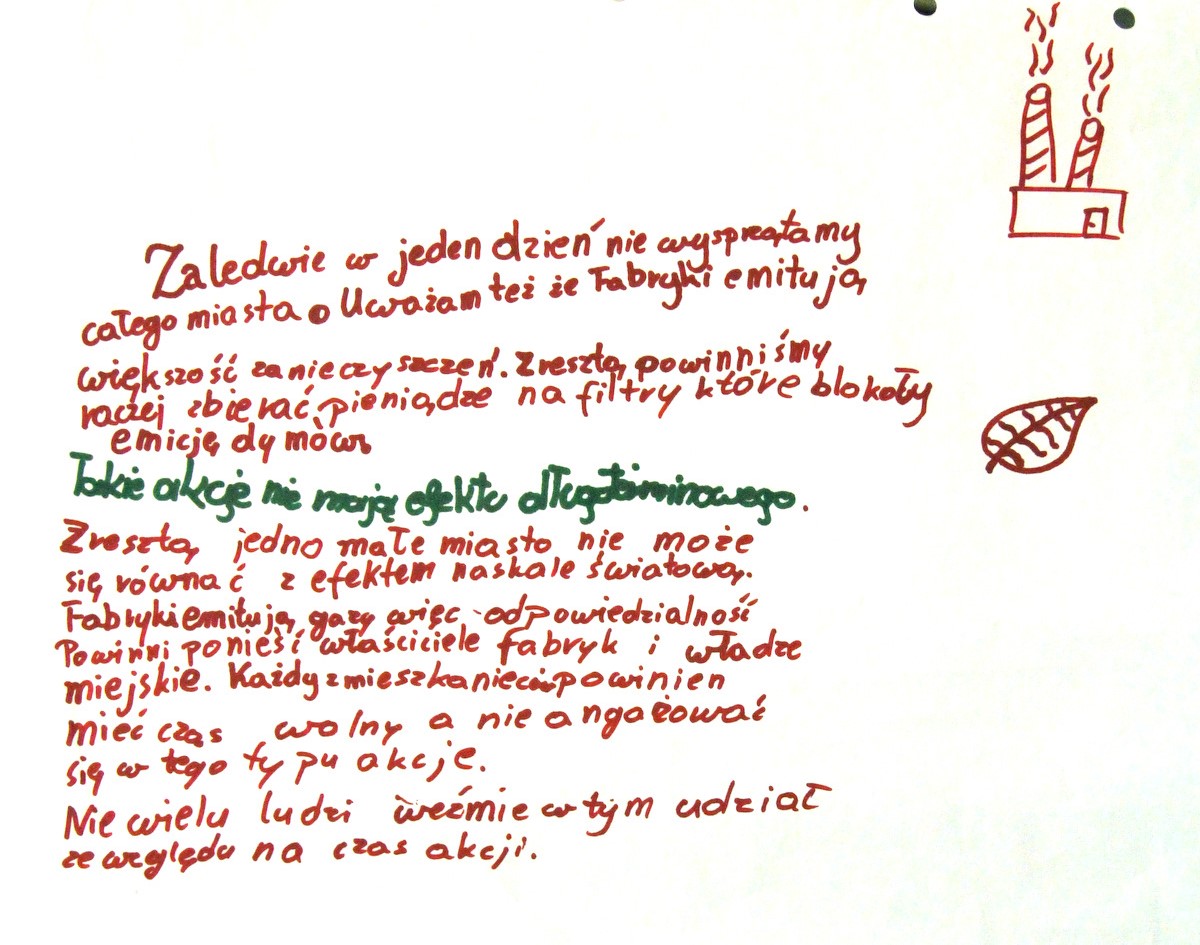 Zaledwie w jeden dzień nie wysprzątamy
całego miasta. Uważam też że Fabryki emitują
większość zanieczyszczeń. Zresztą powinniśmy
raczej zbierać pieniądze na filtry które blokoły
emicję dymów
Takie akcje nie mają efektu długoterminowego.
Zresztą, jedno małe miasto nie może
się równać z efektem naskale światową.
Fabryki emitują gazy więc odpowiedzialność
Powinni ponieść właściciele fabryk i władze
miejskie. Każdy z mieszkaniec powinien
mieć czas wolny a nie angażować
się w tego typu akcje.
Nie wielu ludzi weźmie w tym udział
ze względu na czas akcji.